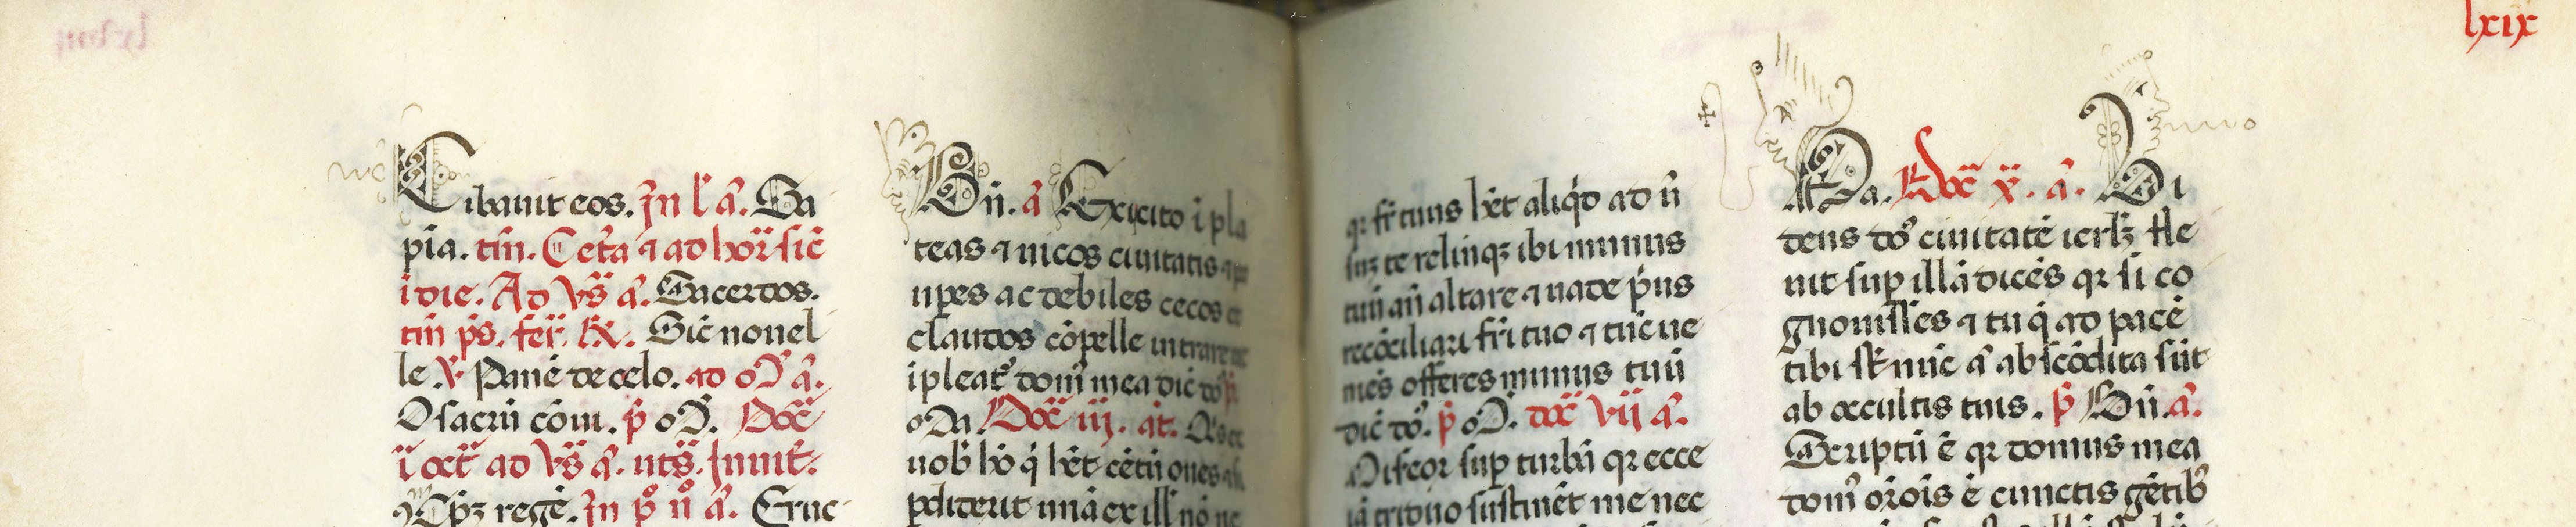 lxix
Cibauit eos. In l' a̅. Sa
pīa. tm̄. Cet̄a ⁊ ad hor̄ sic̄
ī die. Ad vs̄ a̅. Sacerdos.
tm̄ ps̄. fer̄. Sic̄ nouel
le. ℣ Panē de celo. ad oꝺ̄ a̅.
O sacrū cōui. p̄ oꝺ̄. Doc̄
ī oct̄ ad vs̄ a̅. uts̄. Inuit̄.
xp̄ꝫ regē. In p̊ n̊ a̅. Eruc
Bn̄. a̅ Exi cito ī pla
teas ⁊ uicos ciuitatis ⁊
uꝑes ac debiles cecos
claudos cōpelle intrare
īpleat᷑ dom᷒ mea dic̄ dō᷒ p̄.
oꝺn Doc̄ iij. at̄.
uob̄ hō q̄ hēt cētū oues
ꝑdiderit unā ex ill̄ nō
qꝛ fr̄ tuus hēt aliq̊d ad u̅
sūꝫ te relinqꝫ ibi munus
tuū an̄ altare ⁊ uade p̄us
recōciliari fr̄i tuo ⁊ tūc ue
niēs offeres munus tuū
dic̄ dō᷒. p̄ oꝺ̄. doc̄ vij a̅.
Miseor suꝑ turbā qꝛ ecce
iā triduo sustinēt me nec
Da. Doc̄ x. a̅. Vi
dens dō᷒ ciuitatē ierlꝫ fle
uit suꝑ illā dicēs qꝛ si co
gnouisses ⁊ tu q̄ ad pacē
tibi st̄ nūc a̅ abscōdita sūt
ab oculis tuis. p̄ Bn̄. a̅.
Scriptū ē qꝛ domus mea
dom᷒ orōis ē cunctis gētib᷒